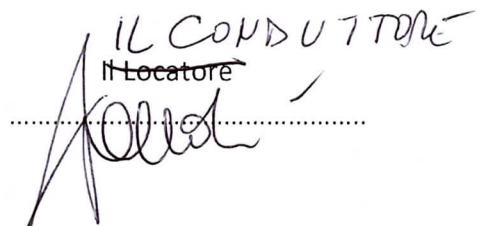 IL CONDUTTORE
Il Locatore